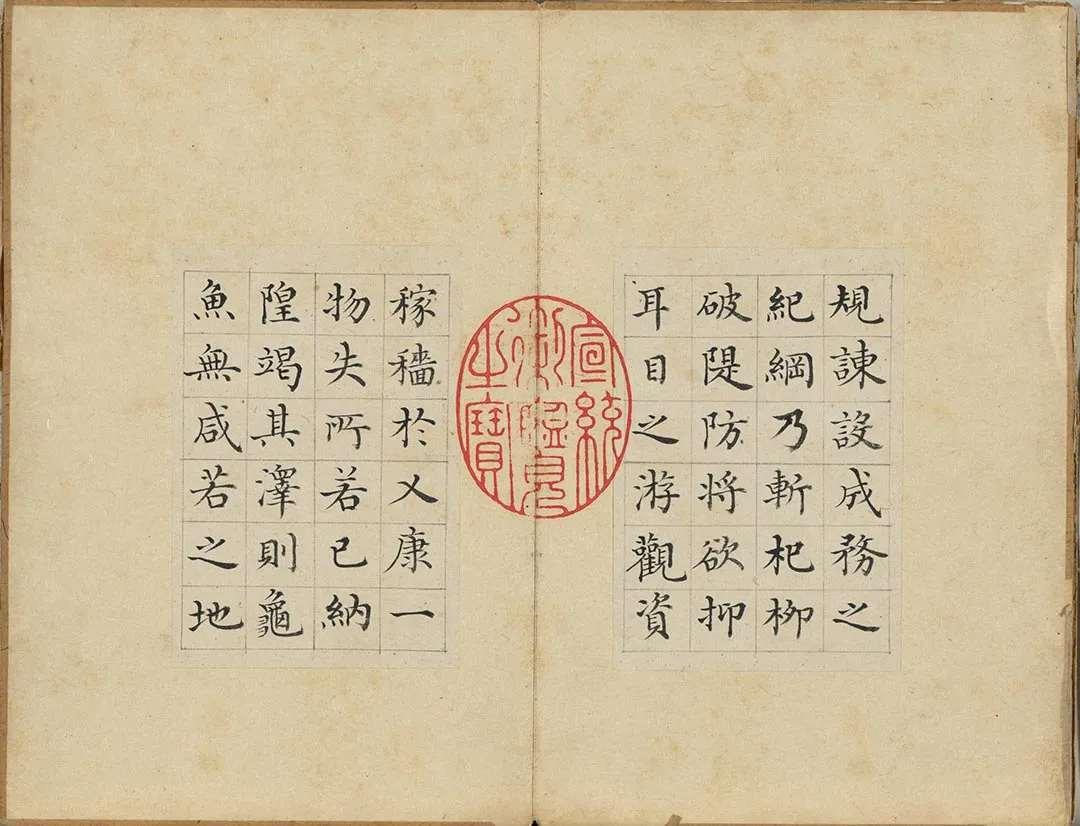 規諫設成務之
紀綱乃斬杞柳
破隄防将欲抑
耳目之游觀資
宣統
御覽
之寶
稼穡於乂康一
物失所若已納
隍竭其澤則龜
魚無咸若之地